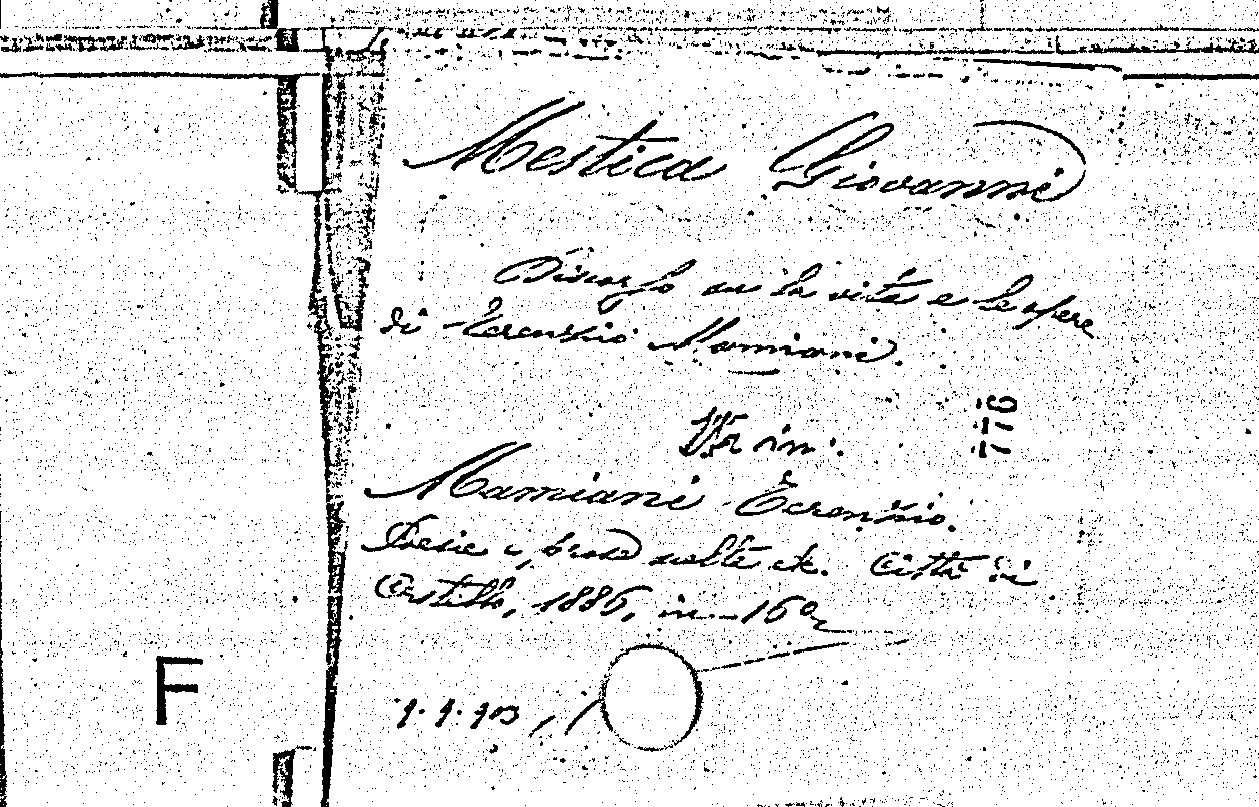 Mestica Giovanni
Discorso su la vita e le opere
di Terenzio Mamiani.
776
Va in:
Mamiani Terenzio.
Poesie e prose scelte etc. Città di
Castello, 1886, in-16°
9.9.903
F